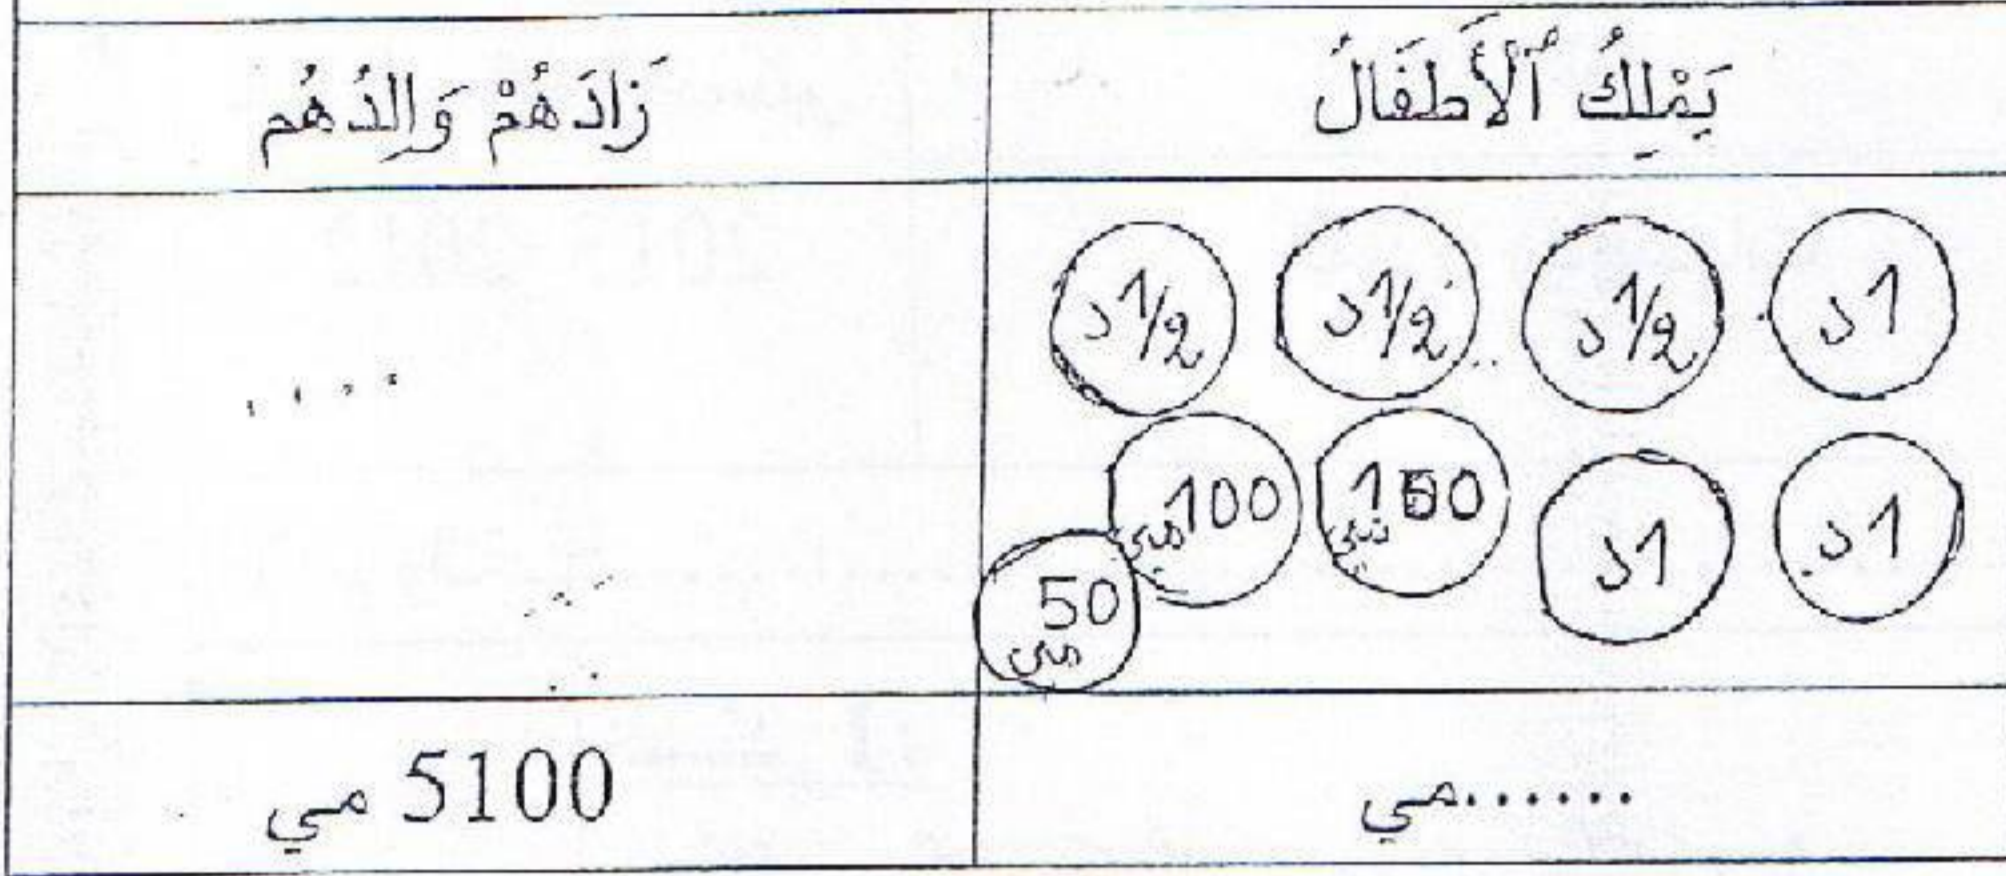 يَمْلِكُ ٱلْأَطْفَالُ
زَادَهُمْ وَالِدُهُم
1د 1/2د 1/2د 1/2د
1د 1د 100مي
50مي
......مي
5100 مي